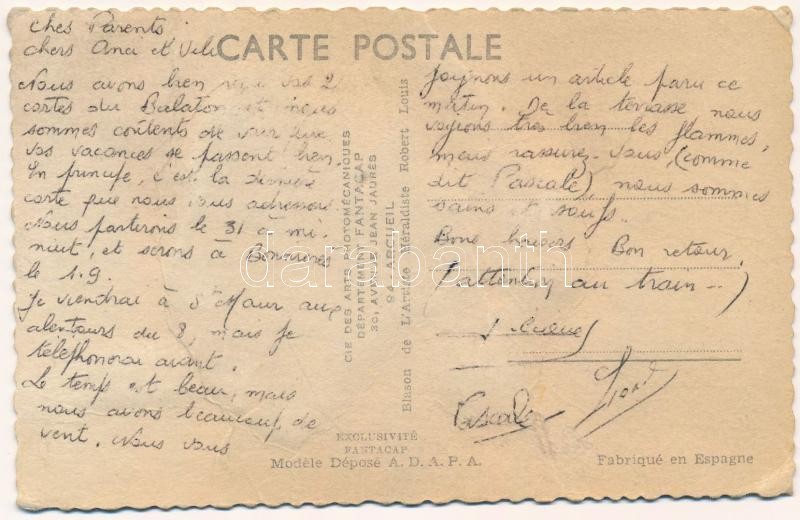 CARTE POSTALE
Chers Parents
chers Anci et Veli
Nous avons bien reçu vos 2
cartes du Balaton et nous
sommes contents de voir que
vos vacances se passent bien.
En principe, c'est la dernière
carte que nous vous adressons
Nous partirons le 31 à mi-
nuit, et serons à
le 1.9.
Je viendrai à St Maur aux
alentours du 8, mais je
téléphonerai avant.
Le temps est beau, mais
nous avons beaucoup de
vent. Nous vous
joignons un article paru ce
matin. De la terrasse nous
voyions très bien les flammes,
mais rassurez-vous, (comme
dit Pascale), nous sommes
sains et saufs.
Bons baisers Bon retour.
(attention au train --)
Pascale
CIE DES ARTS PHOTOMÉCANIQUES
DÉPARTEMENT FANTACAP
30, AVENUE JEAN JAURÈS
ARCUEIL
Blason de L'Artiste Héraldiste Robert Louis
EXCLUSIVITÉ
FANTACAP
Modèle Déposé A. D. A. P. A.
Fabriqué en Espagne
darabanth